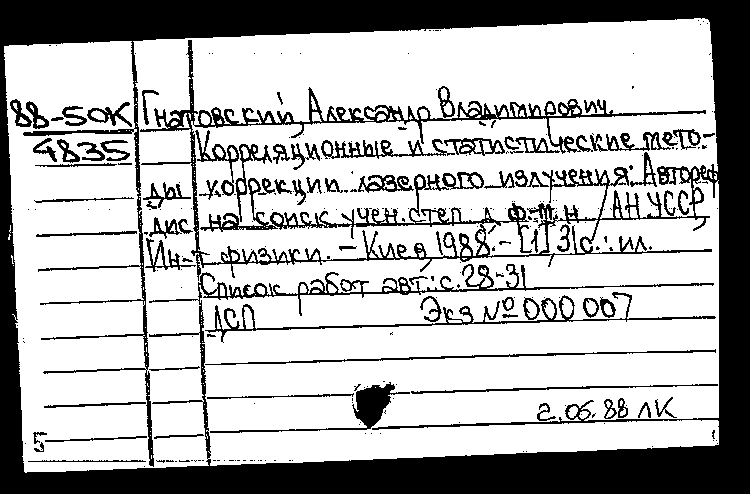 88-5ОК Гнатовский, Александр Владимирович.
4835 Корреляционные и статистические мето-
ды коррекции лазерного излучения: Автореф
дис на соиск учен. степ д. ф.-м. н / АН УССР,
Ин-т физики. – Киев, 1988. – [1], 31 с.: ил.
Список работ авт.: с. 28-31
ДСП Экз № 000 007
2.06.88 ЛК
5